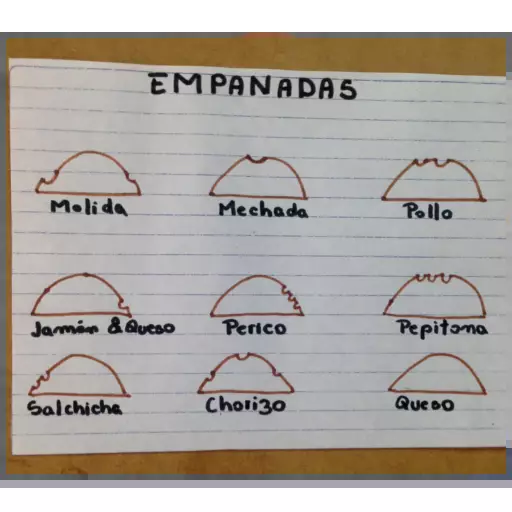 EMPANADAS
Molida Mechada Pollo
Jamón & Queso Perico Pepitona
Salchicha Chorizo Queso